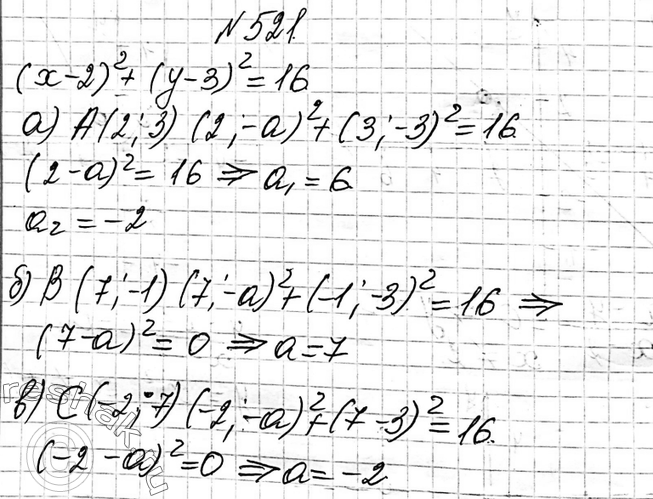 №521.
(x-2)²+(y-3)²=16
а) A(2;3) (2;-a)²+(3;-3)²=16
(2-a)²=16 ⇒ a₁=6
a₂=-2
б) B (7;-1) (7;-a)²+(-1;-3)²=16 ⇒
(7-a)²=0 ⇒ a=7
в) C(-2;-7) (-2;-a)²+(7-3)²=16.
(-2-a)²=0 ⇒ a=-2
reshak.ru